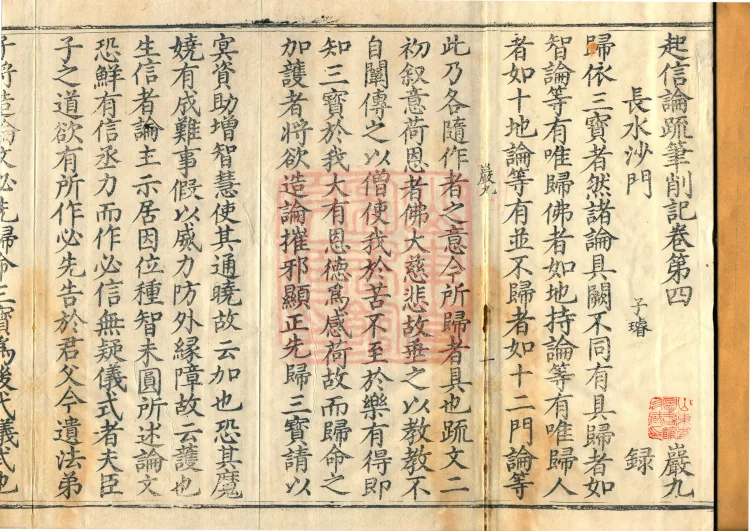 起信論疏筆削記卷第四
巖九
長水沙門
子璿
録
歸依三寶者然諸論具闕不同有具歸者如
智論等有唯歸佛者如地持論等有唯歸人
者如十地論等有並不歸者如十二門論等
巖九
一
此乃各隨作者之意今所歸者具也疏文二
初叙意荷恩者佛大慈悲故垂之以教教不
自闡傳之以僧使我於苦不至於樂有得即
知三寶於我大有恩德爲感荷故而歸命之
加護者將欲造論摧邪顯正先歸三寶請以
冥資助增智慧使其通曉故云加也恐其魔
嬈有成難事假以威力防外緣障故云護也
生信者論主示居因位種智未圓所述論文
恐鮮有信丞力而作必信無疑儀式者夫臣
子之道欲有所作必先告於君父今遺法弟
子將造論文必先歸命三寶爲後代儀式也